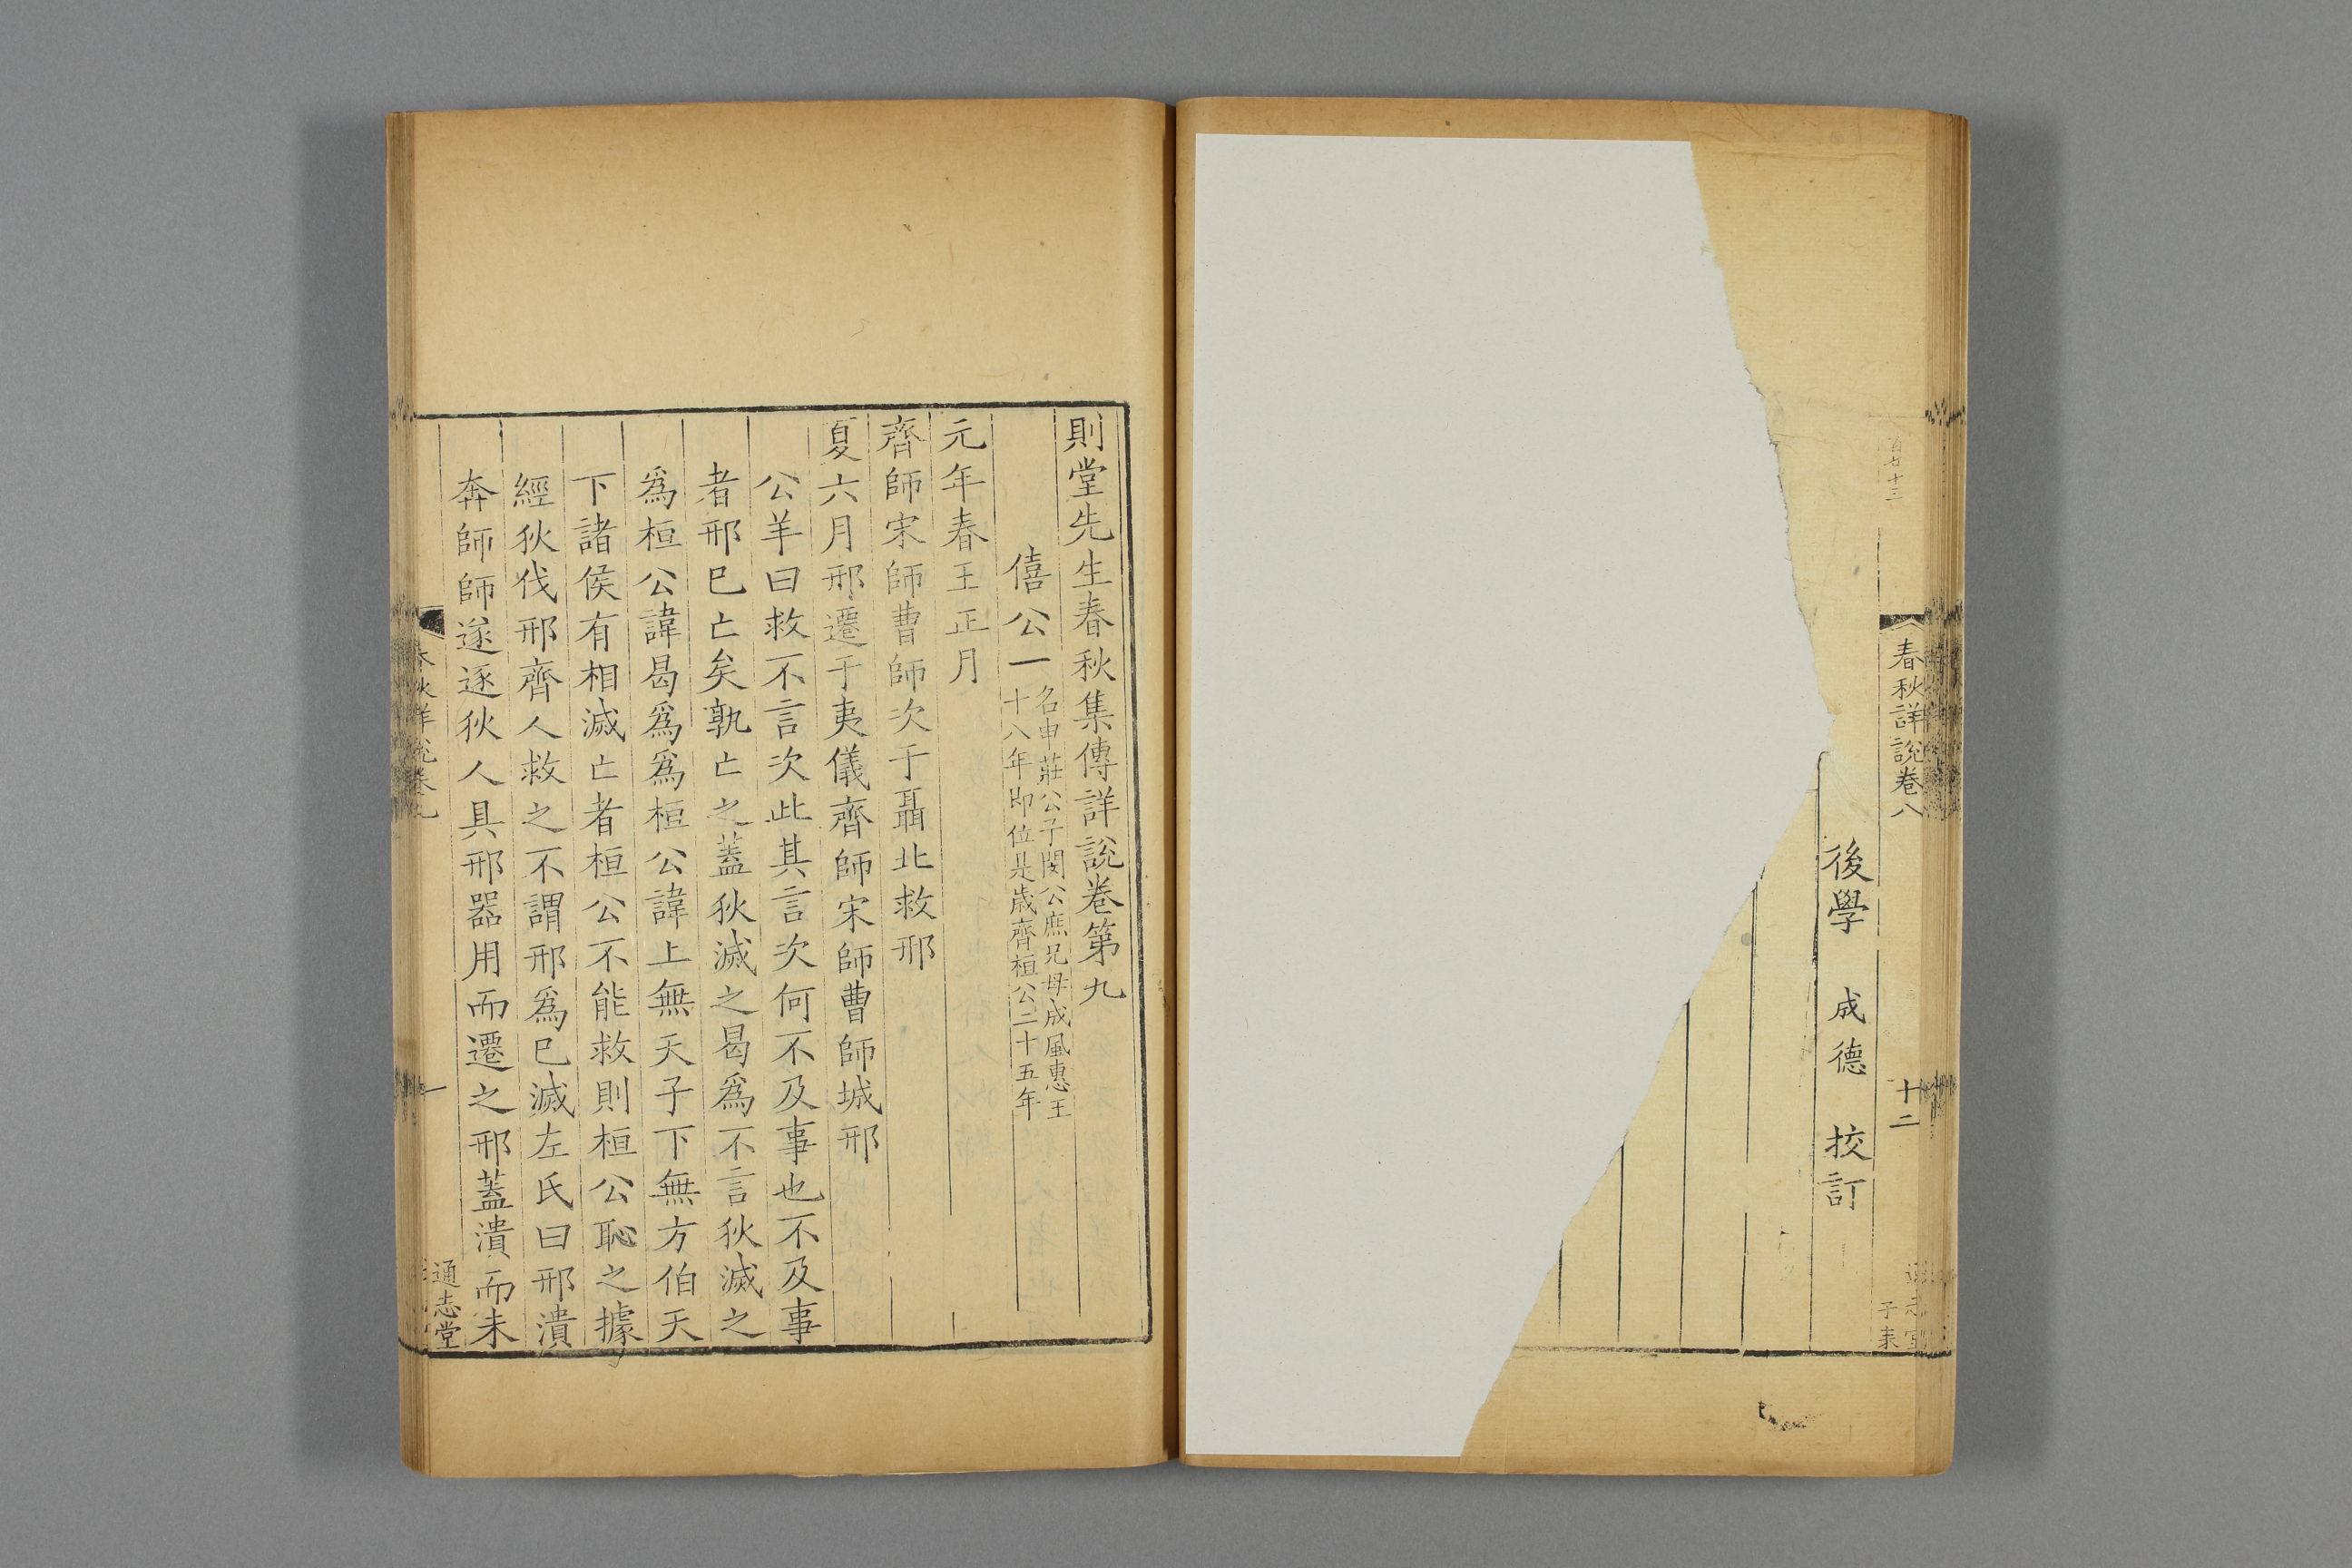 百七十三
春秋詳說卷八
十二
後學 成德 挍訂
則堂先生春秋集傳詳說卷第九
僖公一
名申莊公子閔公庶兄母成風惠王
十八年即位是歲齊桓公二十五年
元年春王正月
齊師宋師曹師次于聶北救邢
夏六月邢遷于夷儀齊師宋師曹師城邢
公羊曰救不言次此其言次何不及事也不及事
者邢已亡矣孰亡之蓋狄滅之曷爲不言狄滅之
爲桓公諱曷爲爲桓公諱上無天子下無方伯天
下諸侯有相滅亡者桓公不能救則桓公恥之據
經狄伐邢齊人救之不謂邢爲已滅左氏曰邢潰
奔師師遂逐狄人具邢器用而遷之邢蓋潰而未
一
通志堂